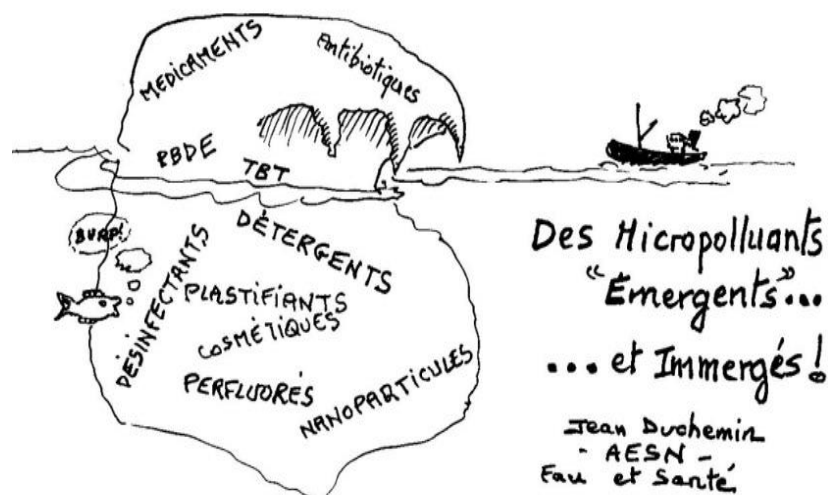 MEDICAMENTS
Antibiotiques
PBDE
TBT
BURP!
DÉTERGENTS
DESINFECTANTS
PLASTIFIANTS
COSMÉTIQUES
PERFLUORÉS
NANOPARTICULES
Des Micropolluants
"Émergents"...
... et Immergés !
Jean Duchemin
- AESN -
Eau et Santé